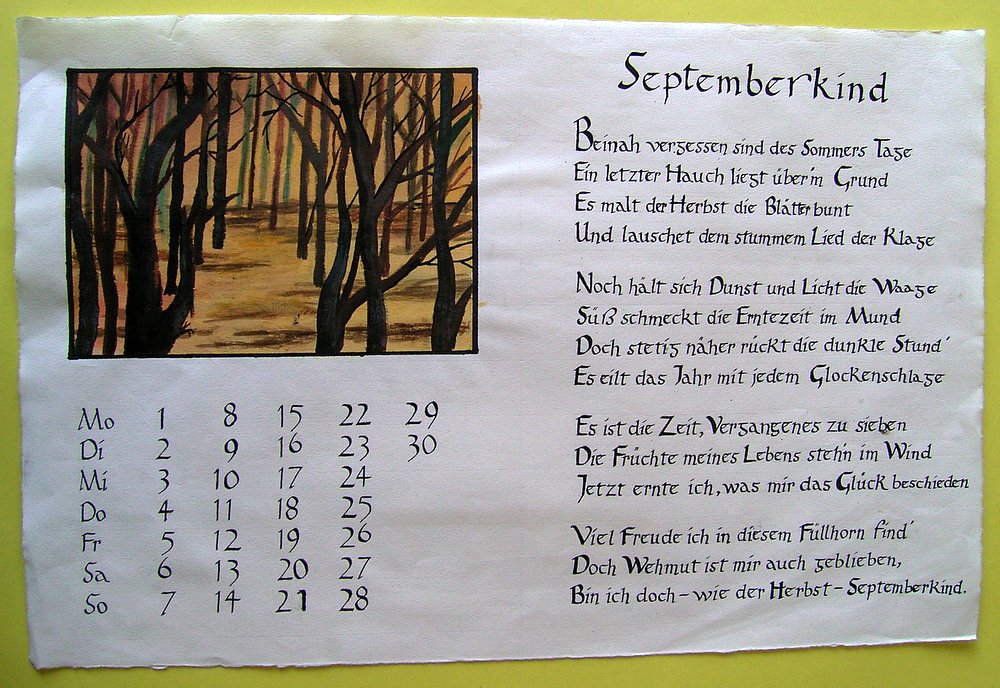 Septemberkind
Beinah vergessen sind des Sommers Tage
Ein letzter Hauch liegt über'm Grund
Es malt der Herbst die Blätter bunt
Und lauschet dem stummem Lied der Klage
Noch hält sich Dunst und Licht die Waage
Süß schmeckt die Erntezeit im Mund
Doch stetig näher rückt die dunkle Stund'
Es eilt das Jahr mit jedem Glockenschlage
Es ist die Zeit, Vergangenes zu sieben
Die Früchte meines Lebens steh'n im Wind
Jetzt ernte ich, was mir das Glück beschieden
Viel Freude ich in diesem Füllhorn find'
Doch Wehmut ist mir auch geblieben,
Bin ich doch – wie der Herbst – Septemberkind.
Mo 1 8 15 22 29
Di 2 9 16 23 30
Mi 3 10 17 24
Do 4 11 18 25
Fr 5 12 19 26
Sa 6 13 20 27
So 7 14 21 28